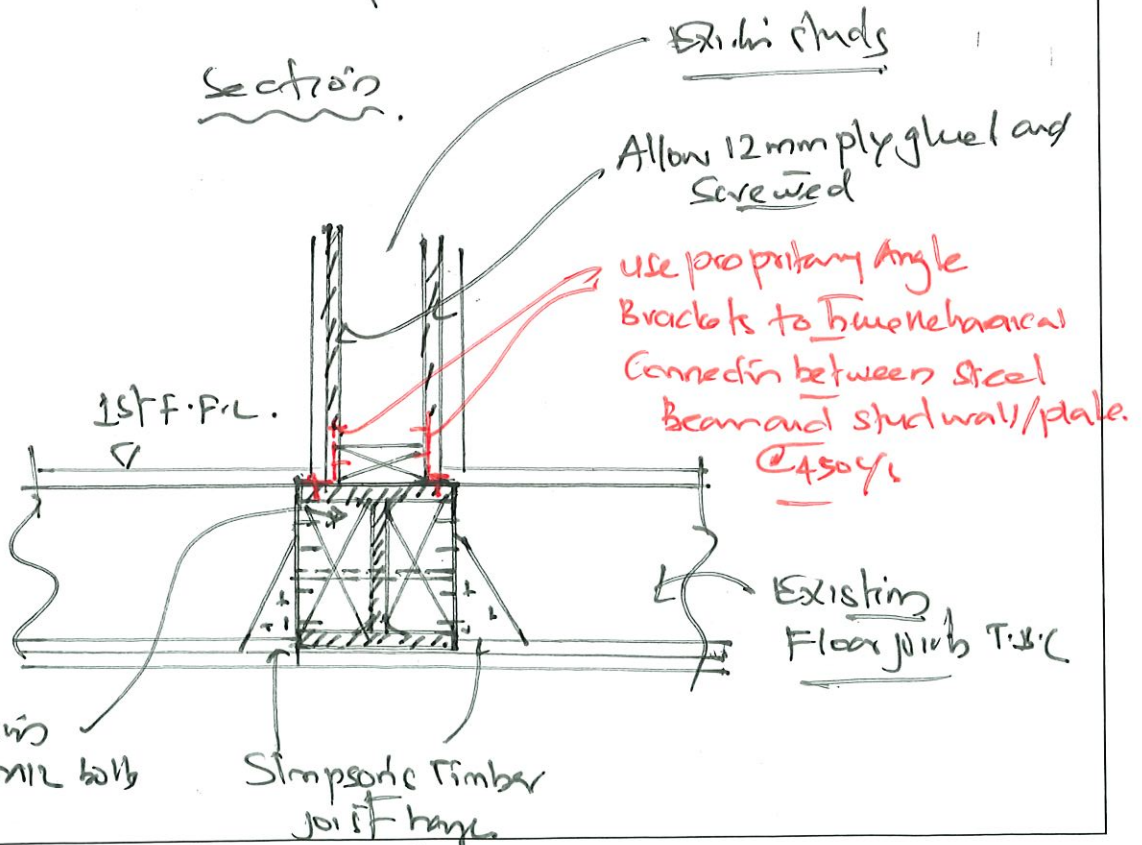 Section.
Exi.hi studs
Allow 12mm ply glued and
Screwed
use propritary Angle
Brackets to
Connectin between steel
Beam and stud wall/plate.
@450 c/s
1st F.F.L.
Existing
Floor joists T.B.C
M12 bolts
Simpsons Timber
joist